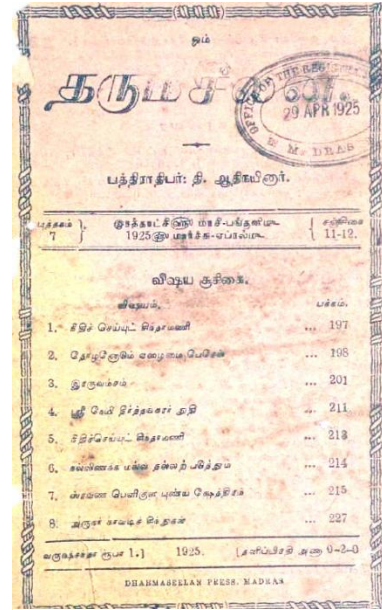 ஓம்
தருமசீலன்.
OFFICE OF THE REGISTRAR
29 APR 1925
MADRAS
பத்திராதிபர்: தி. ஆதிநயினார்.
புத்தகம் 7
மாசி-பங்குனிமீ
1925 மார்ச்சு-ஏப்ரல்மீ
சஞ்சிகை 11-12.
விஷய சூசிகை.
விஷயம். பக்கம்.
1. நீதிச் செய்யுட் சிந்தாமணி ... 197
2. தோழனோடும் ஏழைமை பேசேல் ... 198
3. இரகுவம்சம் ... 201
4. ஸ்ரீ நேமி தீர்த்தங்கரர் துதி ... 211
5. நீதிச்செய்யுட் சிந்தாமணி ... 213
6. ... 214
7. பெளிகுள புண்ய க்ஷேத்திரம் ... 215
8. அருகர் ... 227
வருடசந்தா ரூபா 1.] 1925. [தனிப்பிரதி அணா 0-2-0
DHARMASEELAN PRESS, MADRAS